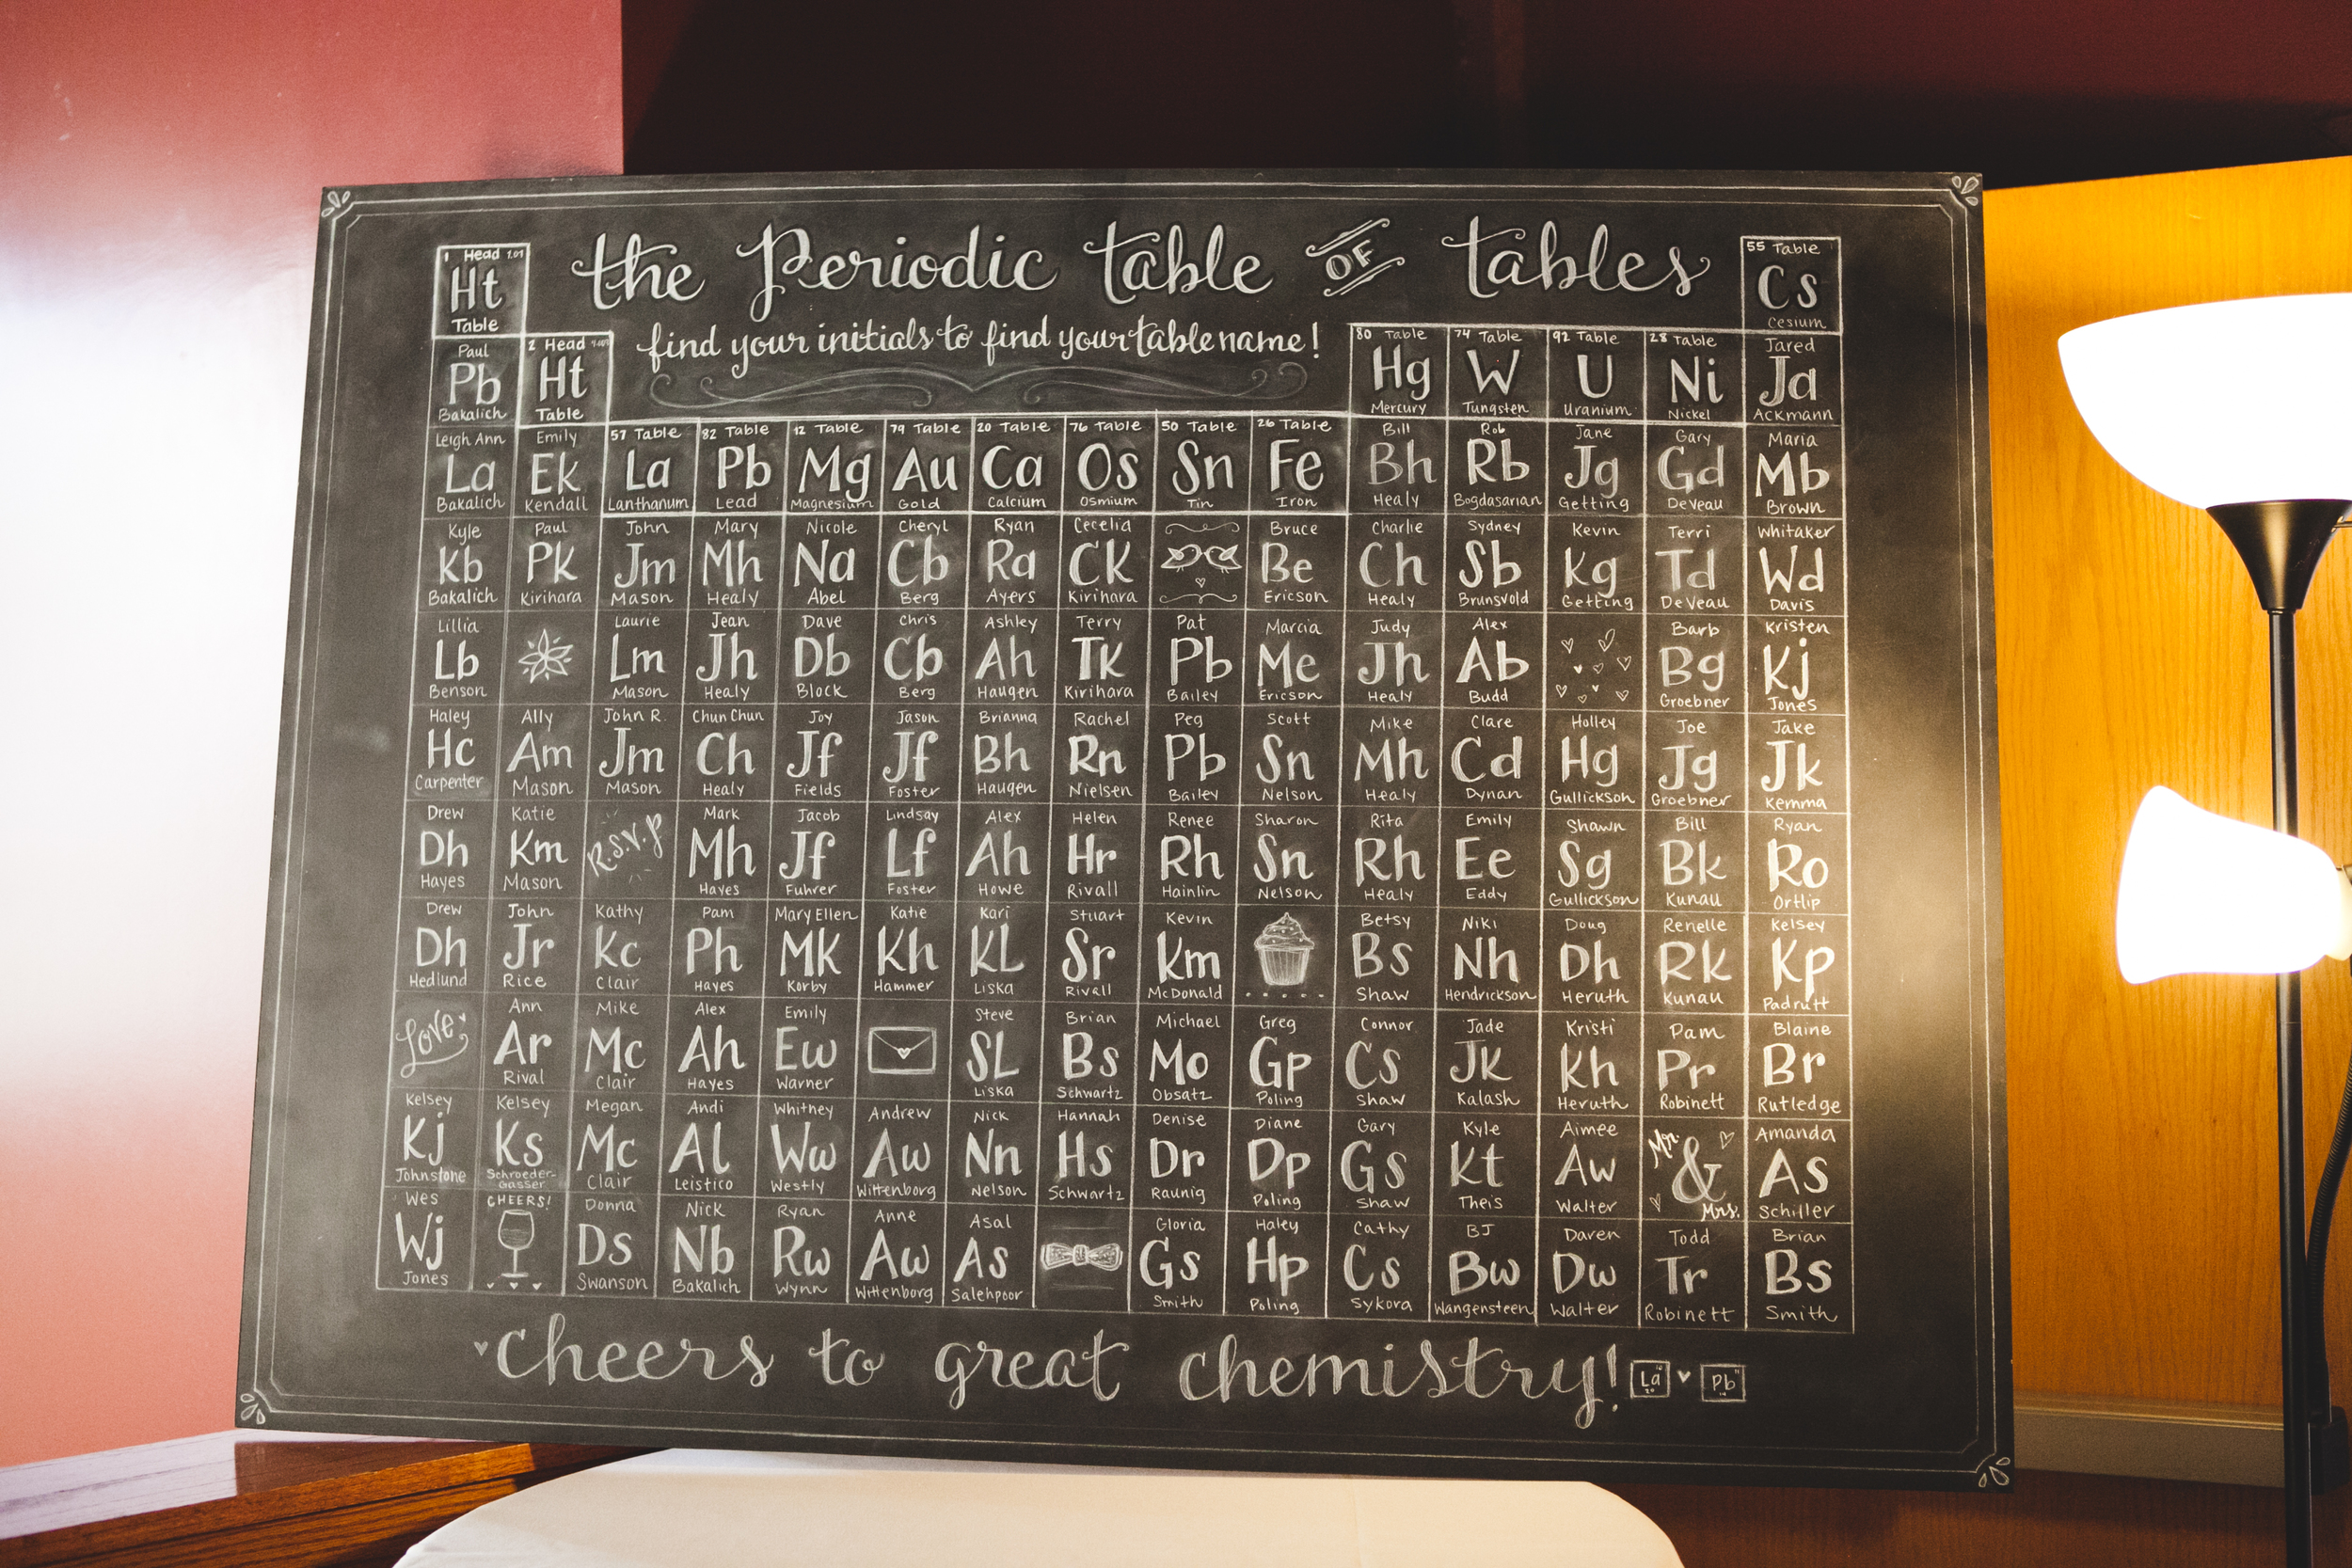 the Periodic table OF tables
find your initials to find your table name!
1 Head 1.01
Ht
Table
55 Table
Cs
Cesium
Paul 2 Head 80 Table 74 Table 92 Table 28 Table Jared
Pb Ht Hg W U Ni Ja
Bakalich Table Mercury Tungsten Uranium Nickel Ackmann
Leigh Ann Emily 57 Table 82 Table 12 Table 79 Table 20 Table 76 Table 50 Table 26 Table Bill Rob Jane Gary Maria
La Ek La Pb Mg Au Ca Os Sn Fe Bh Rb Jg Gd Mb
Bakalich Kendall Lanthanum Lead Magnesium Gold Calcium Osmium Tin Iron Healy Bogdasarian Getting DeVeau Brown
Kyle Paul John Mary Nicole Cheryl Ryan Cecelia Bruce Charlie Sydney Kevin Terri Whitaker
Kb Pk Jm Mh Na Cb Ra Ck Be Ch Sb Kg Td Wd
Bakalich Kirihara Mason Healy Abel Berg Ayers Kirihara Ericson Healy Brunsvold Getting DeVeau Davis
Lillia Laurie Jean Dave Chris Ashley Terry Pat Marcia Judy Alex Barb Kristen
Lb Lm Jh Db Cb Ah Tk Pb Me Jh Ab Bg Kj
Benson Mason Healy Block Berg Haugen Kirihara Bailey Ericson Healy Budd Groebner Jones
Haley Ally John R. Chun Chun Joy Jason Brianna Rachel Peg Scott Mike Clare Holley Joe Jake
Hc Am Jm Ch Jf Jf Bh Rn Pb Sn Mh Cd Hg Jg Jk
Carpenter Mason Mason Healy Fields Foster Haugen Nielsen Bailey Nelson Healy Dynan Gullickson Groebner Kemma
Drew Katie R.S.V.P Mark Jacob Lindsay Alex Helen Renee Sharon Rita Emily Shawn Bill Ryan
Dh Km Mh Jf Lf Ah Hr Rh Sn Rh Ee Sg Bk Ro
Hayes Mason Hayes Fuhrer Foster Howe Rivall Hainlin Nelson Healy Eddy Gullickson Kunau Ortlip
Drew John Kathy Pam Mary Ellen Katie Kari Stuart Kevin Betsy Niki Doug Renelle Kelsey
Dh Jr Kc Ph Mk Kh KL Sr Km Bs Nh Dh Rk Kp
Hedlund Rice Clair Hayes Korby Hammer Liska Rivall McDonald Shaw Hendrickson Heruth Kunau Padrutt
Love Ann Mike Alex Emily Steve Brian Michael Greg Connor Jade Kristi Pam Blaine
Ar Mc Ah Ew SL Bs Mo Gp Cs Jk Kh Pr Br
Rival Clair Hayes Warner Liska Schwartz Obsatz Poling Shaw Kalash Heruth Robinett Rutledge
Kelsey Kelsey Megan Andi Whitney Andrew Nick Hannah Denise Diane Gary Kyle Aimee Mr. Amanda
Kj Ks Mc Al Ww Aw Nn Hs Dr Dp Gs Kt Aw & As
Johnstone Schroeder-Gasser Clair Leistico Westly Wittenborg Nelson Schwartz Raunig Poling Shaw Theis Walter Mrs. Schiller
Wes CHEERS! Donna Nick Ryan Anne Asal Gloria Haley Cathy BJ Daren Todd Brian
Wj Ds Nb Rw Aw As Gs Hp Cs Bw Dw Tr Bs
Jones Swanson Bakalich Wynn Wittenborg Salehpoor Smith Poling Sykora Wangensteen Walter Robinett Smith
cheers to great chemistry! La Pb